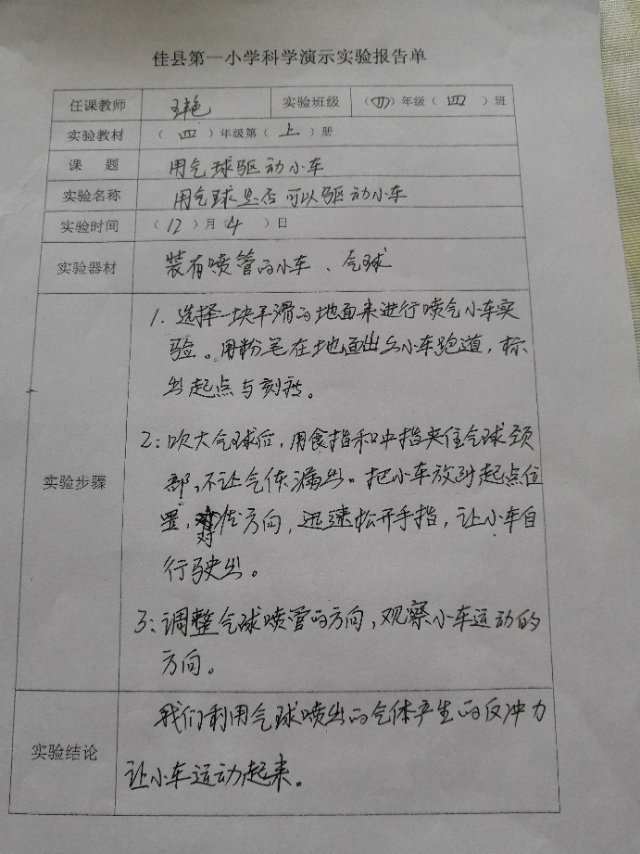 佳县第一小学科学演示实验报告单
任课教师 艳 实验班级 （四）年级（四）班
实验教材 （四）年级第（上）册
课 题 用气球驱动小车
实验名称 用气球是否可以驱动小车
实验时间 （12）月（4）日
实验器材 装有喷管的小车、气球
实验步骤
1. 选择一块平滑的地面来进行喷气小车实
验。用粉笔在地面出小车跑道，标
出起点与刻
2：吹大气球后，用食指和中指夹住气球颈
部，不让气体漏出。把小车放到起点位
置，方向，迅速松开手指，让小车自
行驶出。
3：调整气球喷管的方向，观察小车运动的
方向。
实验结论
我们利用气球喷出的气体产生的反冲力
让小车运动起来。